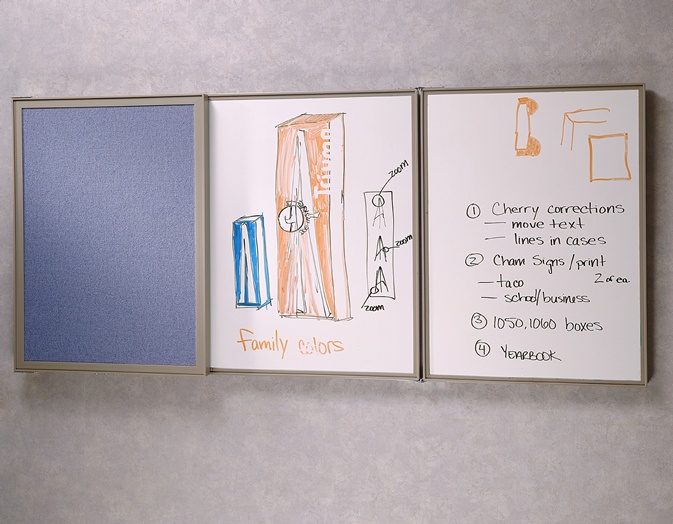 zoom
zoom
zoom
Family colors
① Cherry corrections
— move text
— lines in cases
② Cham Signs/print
— taco 2 of ea.
— school/business
③ 1050, 1060 boxes
④ YEARBOOK